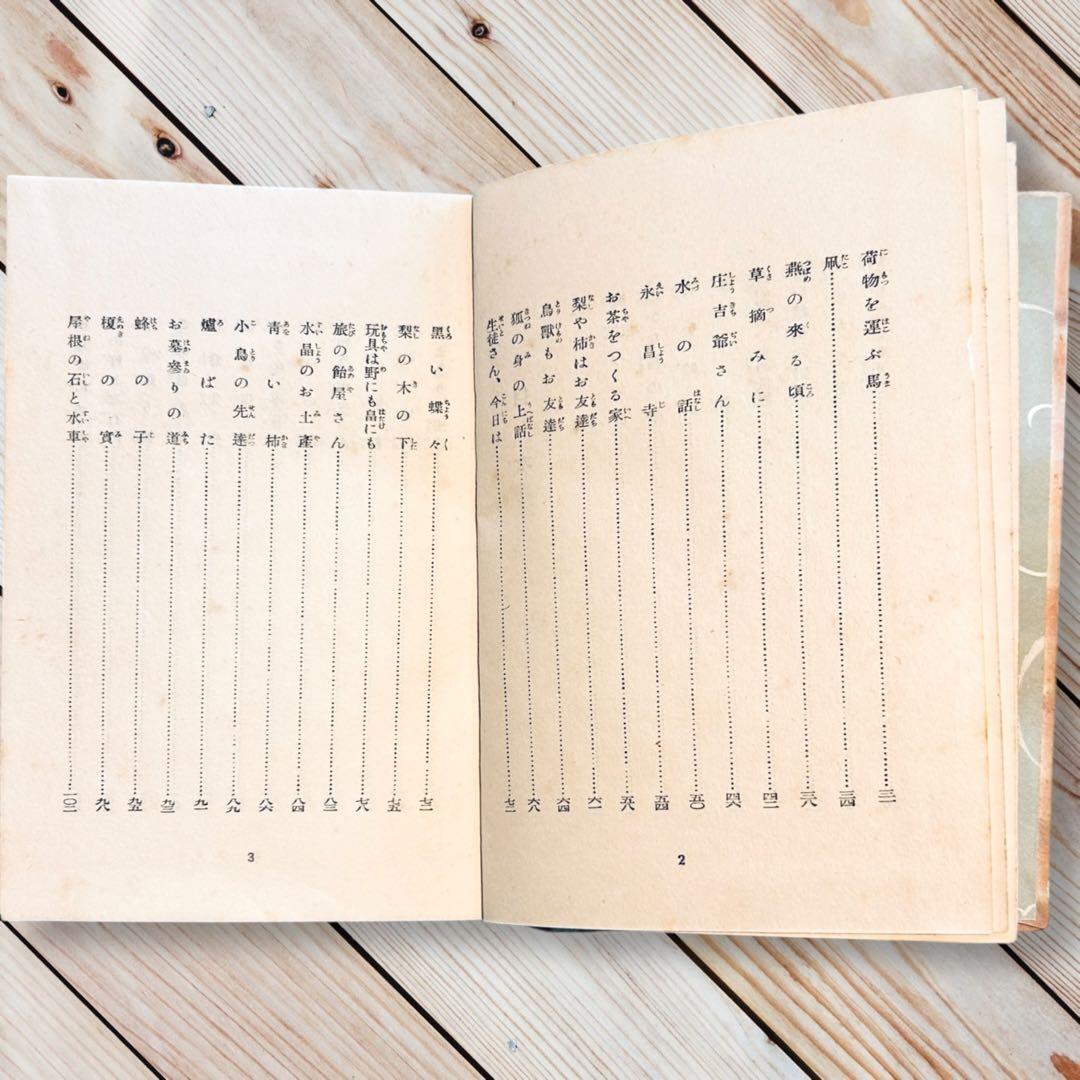 荷物を運ぶ馬……三一
凧……三四
燕の來る頃……三八
草摘みに……四二
庄吉爺さん……四六
水の話……五〇
永昌寺……五四
お茶をつくる家……五八
梨や柿はお友達……六一
鳥獸もお友達……六四
狐の身の上話……六八
生徒さん、今日は……
2
黑い蝶々……
梨の木の下……七五
玩具は野にも畠にも……七八
旅の飴屋さん……
水晶のお土產……八四
靑い柿……八六
小鳥の先達……八九
爐ばた……九一
お墓參りの道……九三
蜂の子……九五
榎の實……九八
屋根の石と水車……
3